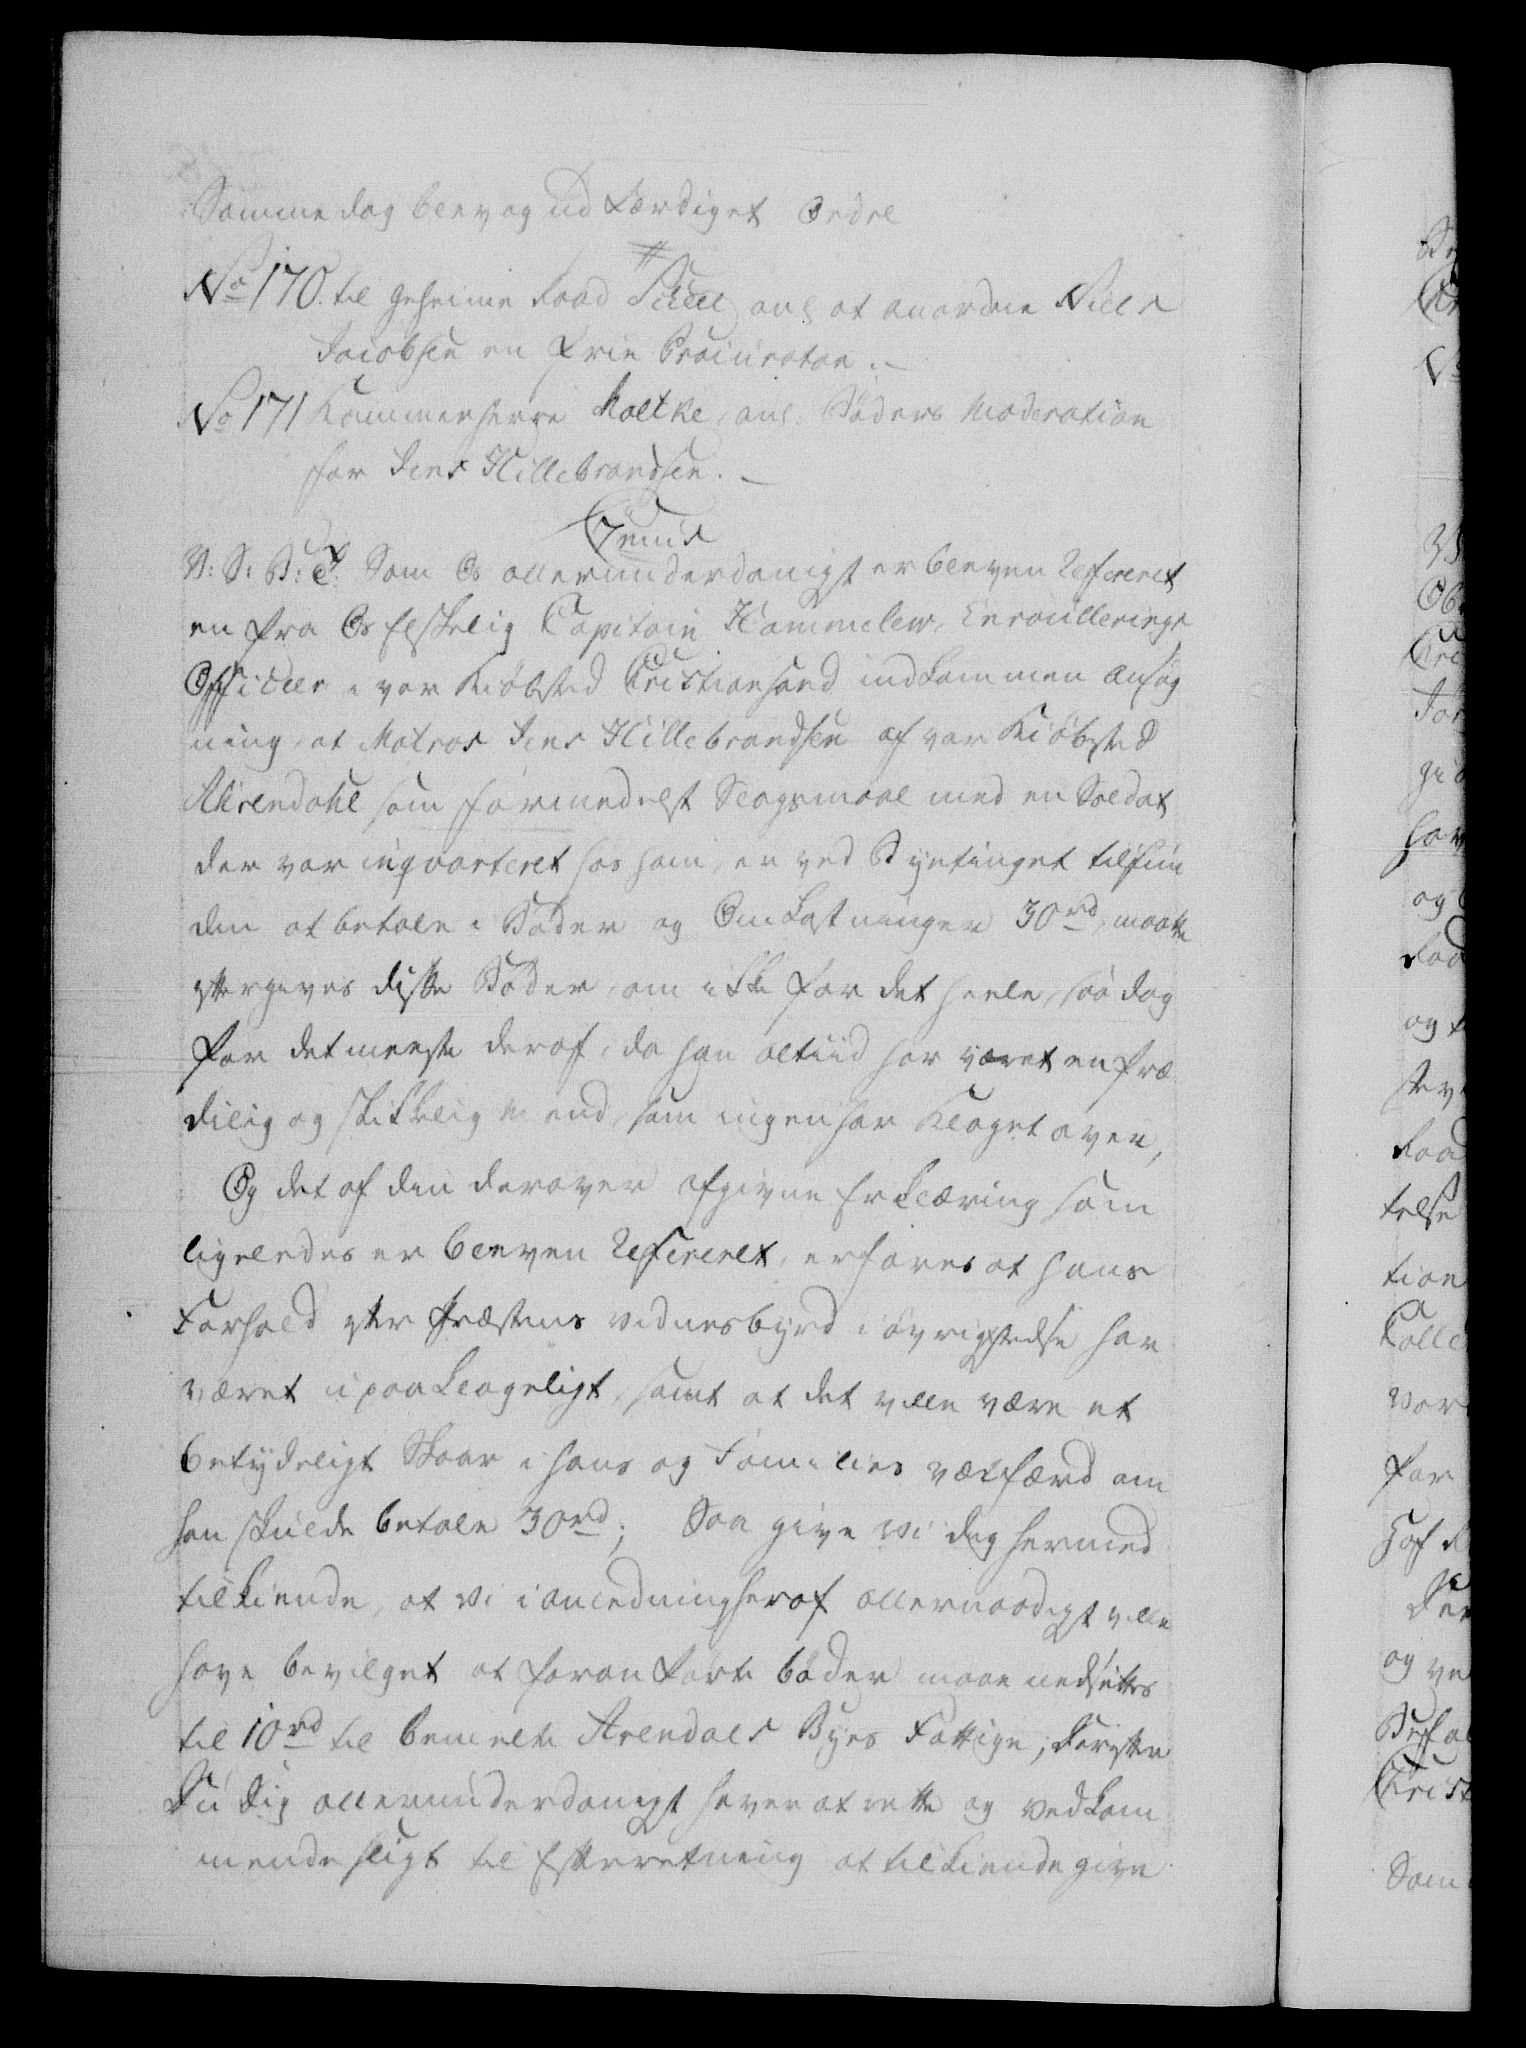 Samme dag blev og udfærdiget Ordre
No 170. til geheime Raad Juel anl at anordne Niels
Jacobsen en Frie Procurator.
No 171 Kammerherre Moltke, anl. Bøders Moderation
for Jens Hillebrandsen.
C 7mus
V: S: B: T: Som Os allerunderdanigst er bleven Refereret
en fra Os Elskelig Capitain Hammelew, Enroullerings
Officeer i vor Kiøbsted Christiansand indkommen Ansøg
ning, at Matros Jens Hillebrandsen af vor Kiøbsted
Ahrendahl som formedelst Slagsmaal med en Soldat
der var inqvarteret hos ham, er ved Byetinget tilfun
den at betale i Bøder og Omkostninger 30rd, maatte
eftergives disse Bøder, om ikke for det heele, saa dog
for det meeste deraf, da han altiid har været en fre
delig og skikkelig Mand, som ingen har Klaget over,
Og det af den derover afgivne Erklæring som
ligeledes er bleven Refereret, erfares at hans
Forhold efter Præstens vidnesbyrd i øvrigt har
været upaaklageligt, samt at det ville være et
betydeligt Skaar i hans og Families velfærd om
han skulde betale 30rd; Saa give Vi dig hermed
tilkiende, at Vi i anledning heraf allernaadigst ville
have bevilget at foranførte bøder maae nedsættes
til 10rd til bemelte Arendals Byes Fattige; derefter
Du dig allerunderdanigst haver at rette og vedkom
mende sligt til Efterretning at tilkiendegive